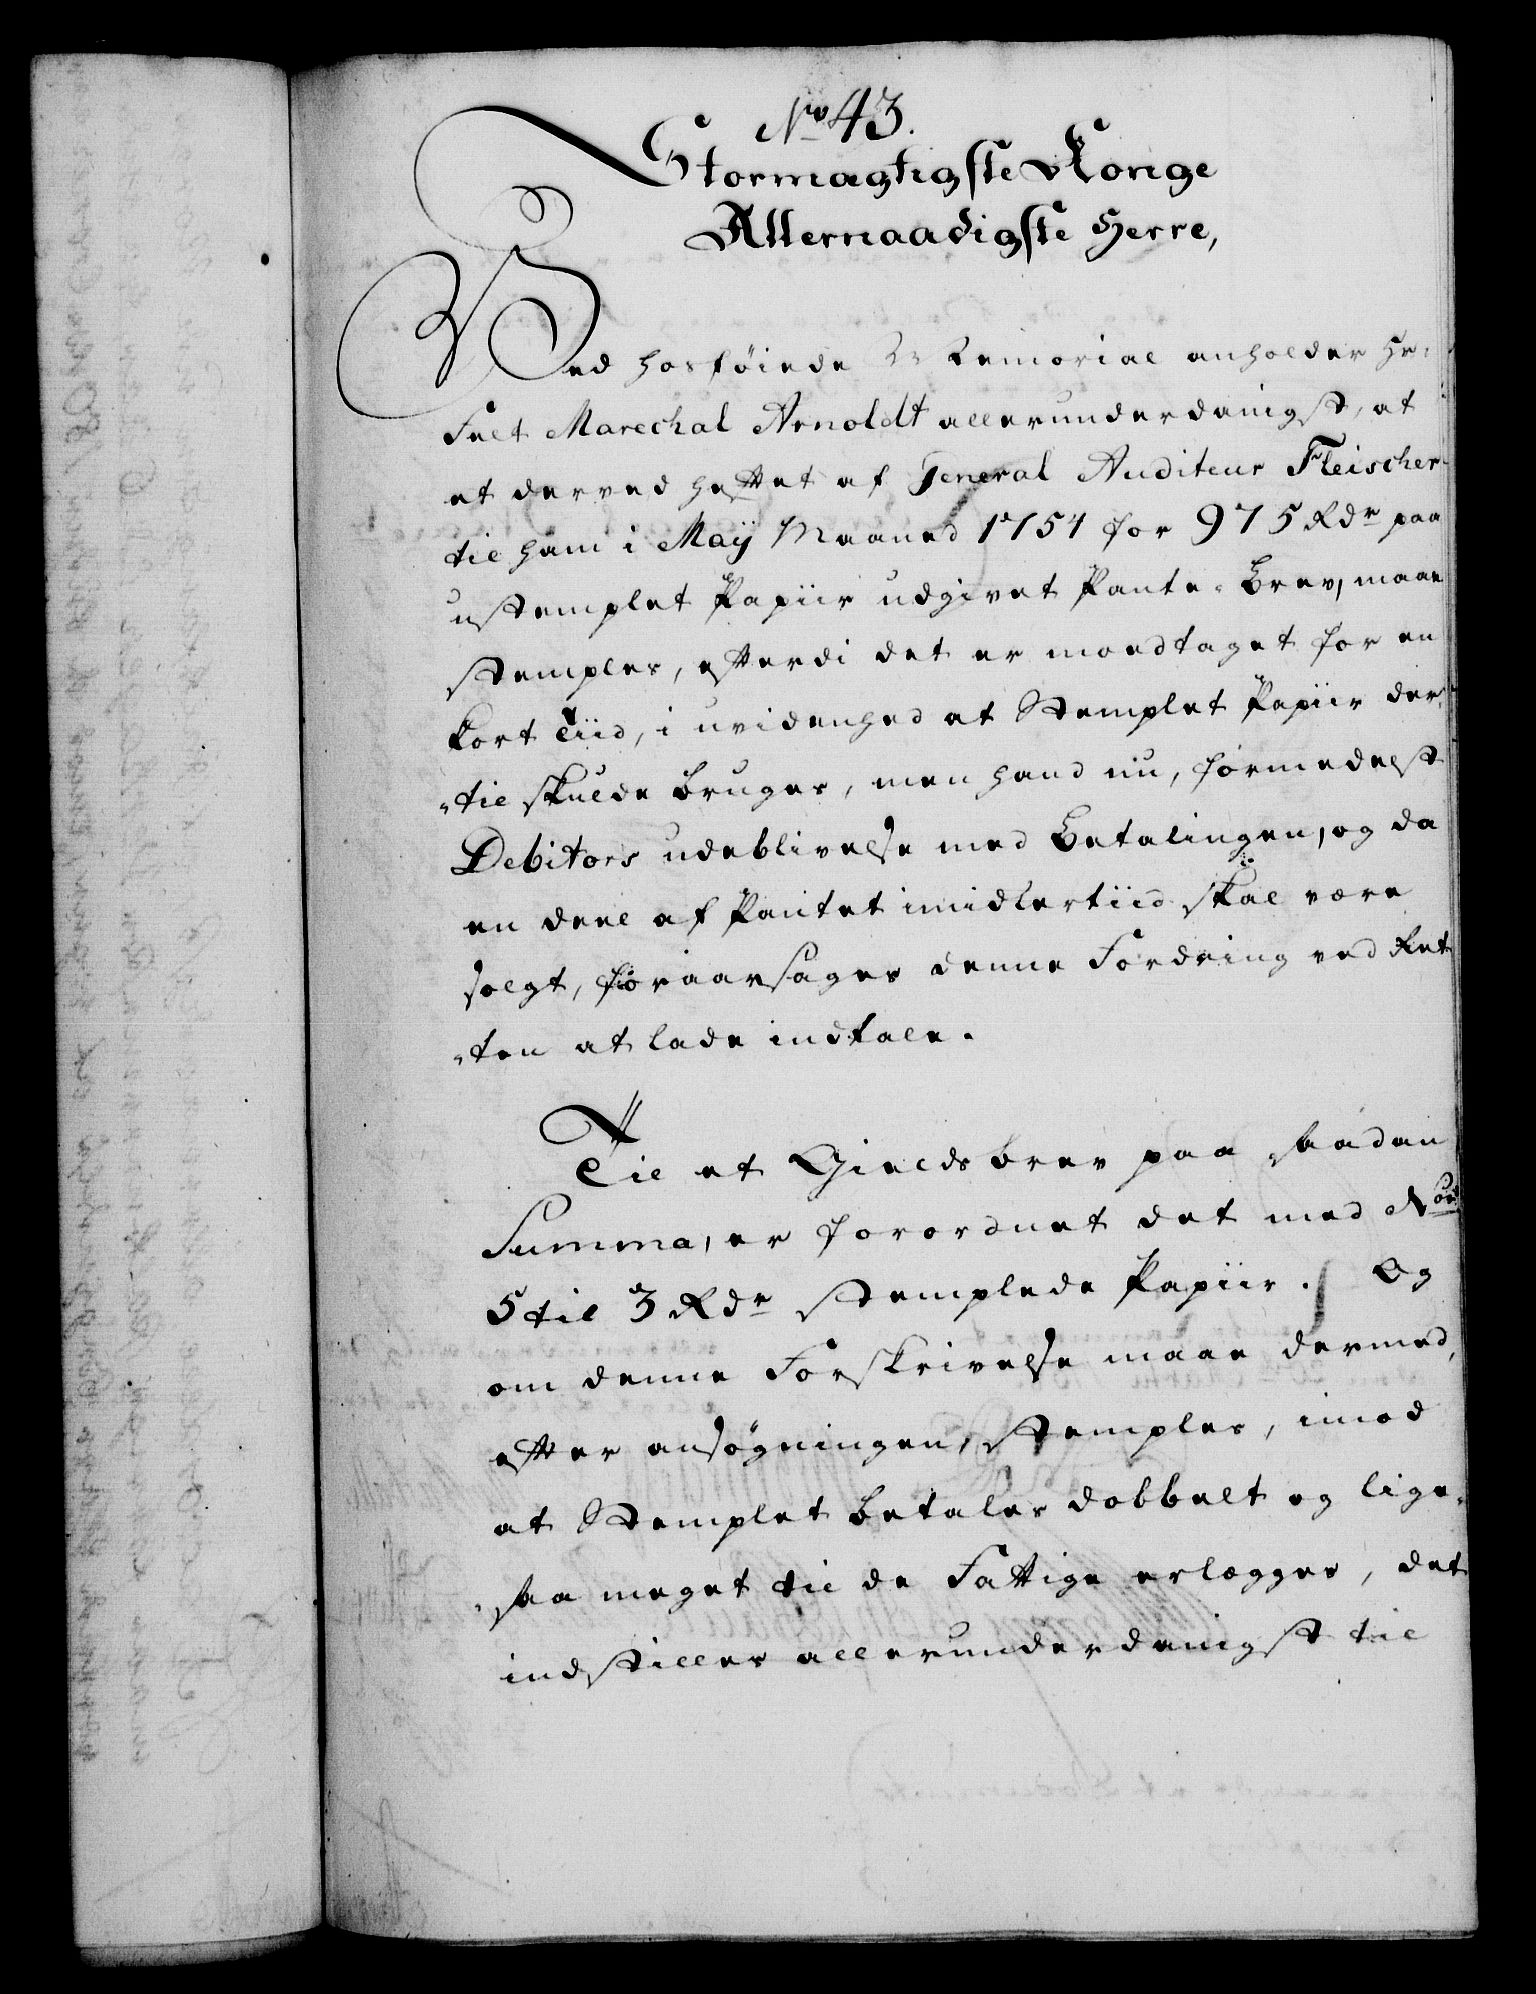 No 43.
Stormægtigste Konge
Allernaadigste Herre,
Ved hosføiede Memorial anholder Hr.
Felt Marechal Arnoldt allerunderdanigst, at
et derved heftet af General Auditeur Fleischer
til ham i Maÿ Maaned 1754 for 975 Rdr paa
ustemplet Papiir udgivet Pante-Brev, maae
stemples, efterdi det er modtaget for en
kort Tiid, i uvidenhed at Stemplet Papiir der-
-til skulde bruges, men hand nu, formedelst
Debitors udeblivelse med Betalingen, og da
en deel af Pantet imidlertiid skal være
solgt, foraarsages denne Fordring ved Ret-
-ten at lade indtale.
Til et Gieldsbrev paa saadan
Summa, er forordnet det med No
5 til 3 Rdr stemplede Papiir. Og
om denne Forskrivelse maae dermed,
efter ansøgningen, stemples, imod
at Stemplet betales dobbelt og lige-
-saa meget til de Fattige erlægges, det
indstilles allerunderdanigst til